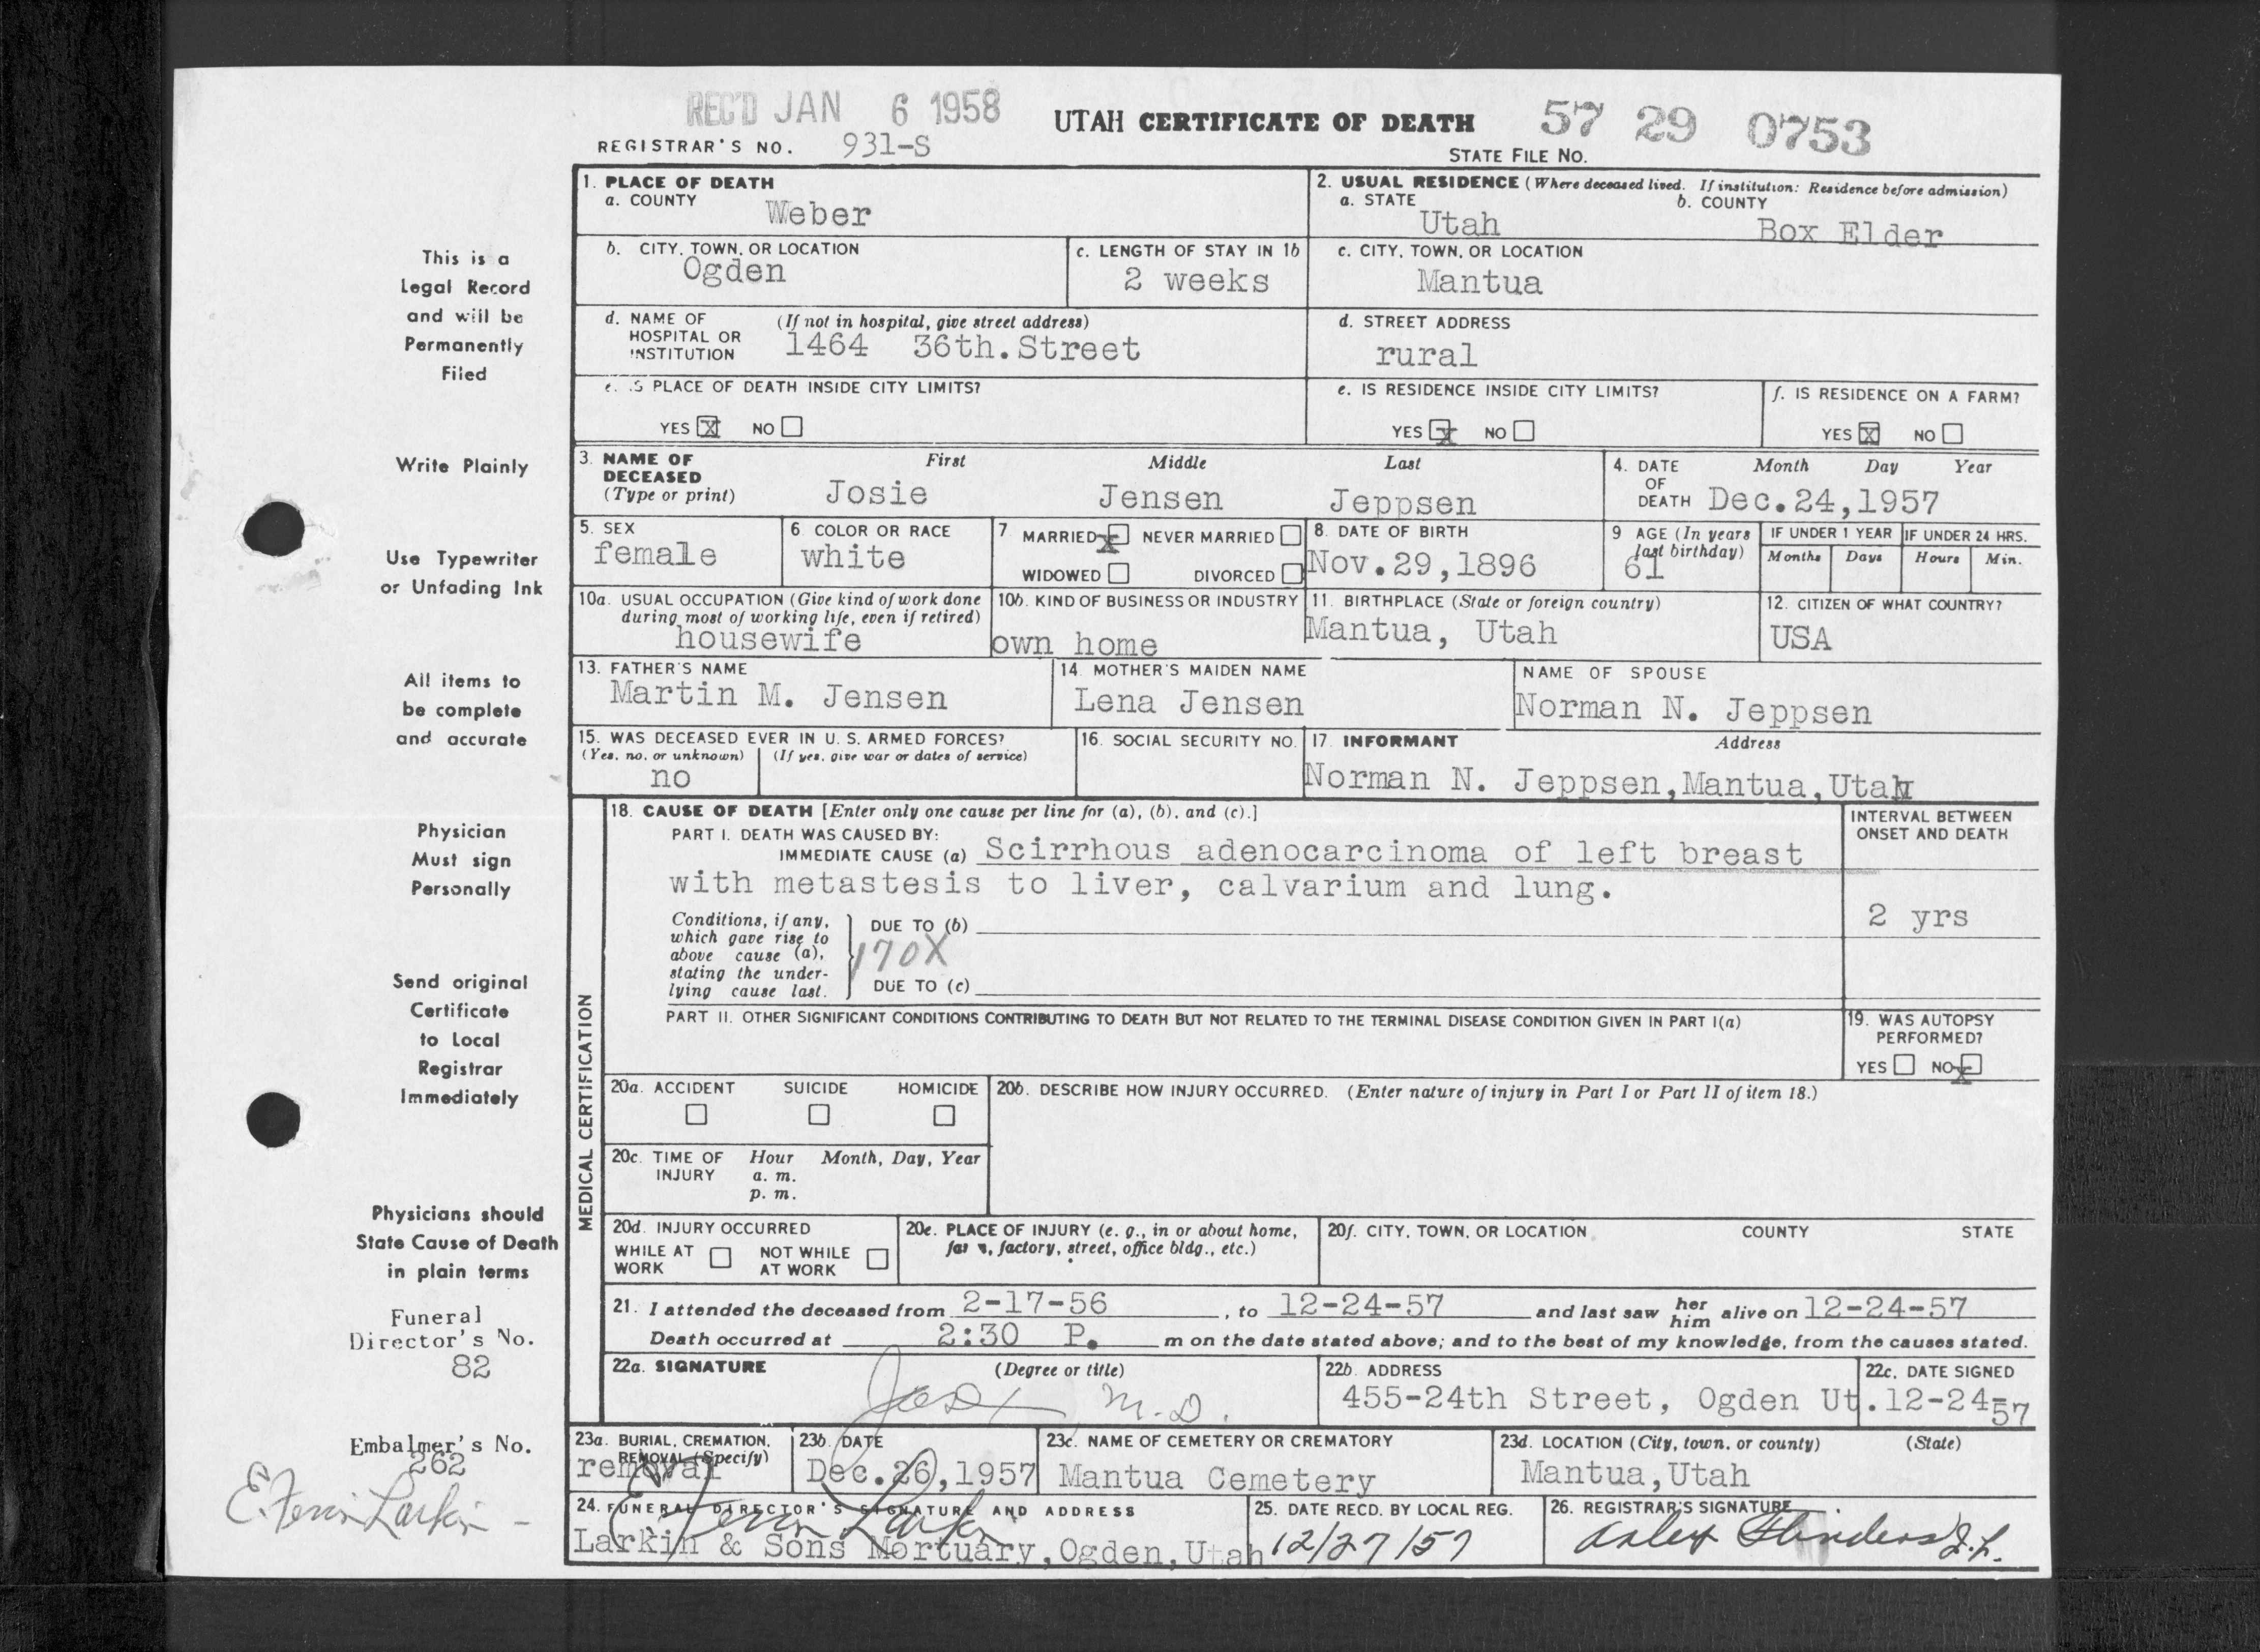 REC'D JAN 6 1958
UTAH CERTIFICATE OF DEATH 57 29 0753
REGISTRAR'S NO. 931-S
STATE FILE NO.
This is a
Legal Record
and will be
Permanently
Filed
Write Plainly
Use Typewriter
or Unfading Ink
All items to
be complete
and accurate
Physician
Must sign
Personally
Send original
Certificate
to Local
Registrar
Immediately
Physicians should
State Cause of Death
in plain terms
Funeral
Director's No.
82
Embalmer's No.
262
E. Ferrin Larkin -
1. PLACE OF DEATH
a. COUNTY
Weber
2. USUAL RESIDENCE (Where deceased lived. If institution: Residence before admission)
a. STATE b. COUNTY
Utah Box Elder
b. CITY, TOWN, OR LOCATION
Ogden
c. LENGTH OF STAY IN 1b
2 weeks
c. CITY, TOWN, OR LOCATION
Mantua
d. NAME OF (If not in hospital, give street address)
HOSPITAL OR
INSTITUTION 1464 36th. Street
d. STREET ADDRESS
rural
e. IS PLACE OF DEATH INSIDE CITY LIMITS?
YES X NO
e. IS RESIDENCE INSIDE CITY LIMITS?
YES X NO
f. IS RESIDENCE ON A FARM?
YES X NO
3. NAME OF First Middle Last
DECEASED
(Type or print) Josie Jensen Jeppsen
4. DATE Month Day Year
OF
DEATH Dec.24,1957
5. SEX
female
6 COLOR OR RACE
white
7 MARRIED X NEVER MARRIED
WIDOWED DIVORCED
8. DATE OF BIRTH
Nov.29,1896
9 AGE (In years
last birthday)
61
IF UNDER 1 YEAR IF UNDER 24 HRS.
Months Days Hours Min.
10a. USUAL OCCUPATION (Give kind of work done
during most of working life, even if retired)
housewife
10b. KIND OF BUSINESS OR INDUSTRY
own home
11. BIRTHPLACE (State or foreign country)
Mantua, Utah
12. CITIZEN OF WHAT COUNTRY?
USA
13. FATHER'S NAME
Martin M. Jensen
14. MOTHER'S MAIDEN NAME
Lena Jensen
NAME OF SPOUSE
Norman N. Jeppsen
15. WAS DECEASED EVER IN U. S. ARMED FORCES?
(Yes, no, or unknown) (If yes, give war or dates of service)
no
16. SOCIAL SECURITY NO.
17. INFORMANT Address
Norman N. Jeppsen,Mantua,Utah
MEDICAL CERTIFICATION
18. CAUSE OF DEATH [Enter only one cause per line for (a), (b), and (c).]
INTERVAL BETWEEN
ONSET AND DEATH
PART I. DEATH WAS CAUSED BY:
IMMEDIATE CAUSE (a) Scirrhous adenocarcinoma of left breast
with metastesis to liver, calvarium and lung.
2 yrs
Conditions, if any,
which gave rise to
above cause (a),
stating the under-
lying cause last.
DUE TO (b)
170X
DUE TO (c)
PART II. OTHER SIGNIFICANT CONDITIONS CONTRIBUTING TO DEATH BUT NOT RELATED TO THE TERMINAL DISEASE CONDITION GIVEN IN PART I(a)
19. WAS AUTOPSY
PERFORMED?
YES NO X
20a. ACCIDENT SUICIDE HOMICIDE
20b. DESCRIBE HOW INJURY OCCURRED. (Enter nature of injury in Part I or Part II of item 18.)
20c. TIME OF Hour Month, Day, Year
INJURY a. m.
p. m.
20d. INJURY OCCURRED
WHILE AT NOT WHILE
WORK AT WORK
20e. PLACE OF INJURY (e. g., in or about home,
farm, factory, street, office bldg., etc.)
20f. CITY, TOWN, OR LOCATION COUNTY STATE
21. I attended the deceased from 2-17-56, to 12-24-57 and last saw her him alive on 12-24-57
Death occurred at 2:30 P. m on the date stated above; and to the best of my knowledge, from the causes stated.
22a. SIGNATURE (Degree or title)
M.D.
22b. ADDRESS
455-24th Street, Ogden Ut.
22c. DATE SIGNED
12-24-57
23a. BURIAL, CREMATION,
REMOVAL (Specify)
removal
23b. DATE
Dec.26,1957
23c. NAME OF CEMETERY OR CREMATORY
Mantua Cemetery
23d. LOCATION (City, town, or county) (State)
Mantua,Utah
24. FUNERAL DIRECTOR'S SIGNATURE AND ADDRESS
E. Ferrin Larkin
Larkin & Sons Mortuary,Ogden,Utah
25. DATE RECD. BY LOCAL REG.
12/27/57
26. REGISTRAR'S SIGNATURE